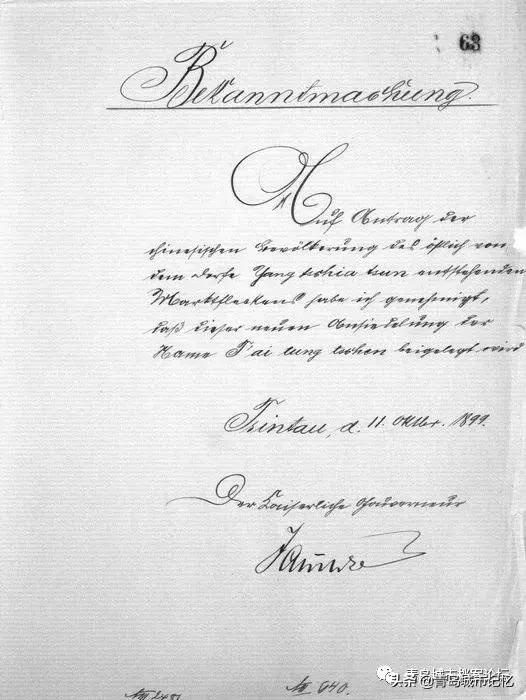 63
Bekanntmachung.
Auf Antrag der
chinesischen Bevölkerung des östlich von
dem Dorfe Yang tschia tsun entstehenden
Marktfleckens habe ich genehmigt,
daß dieser neuen Ansiedelung der
Name T'ai tung tschen beigelegt wird
Tsintau, d. 11. Oktber. 1899.
Der Kaiserliche Gouverneur
Jaeschke
№ 640.
青岛城市档案论坛
头条 @青岛城市记忆